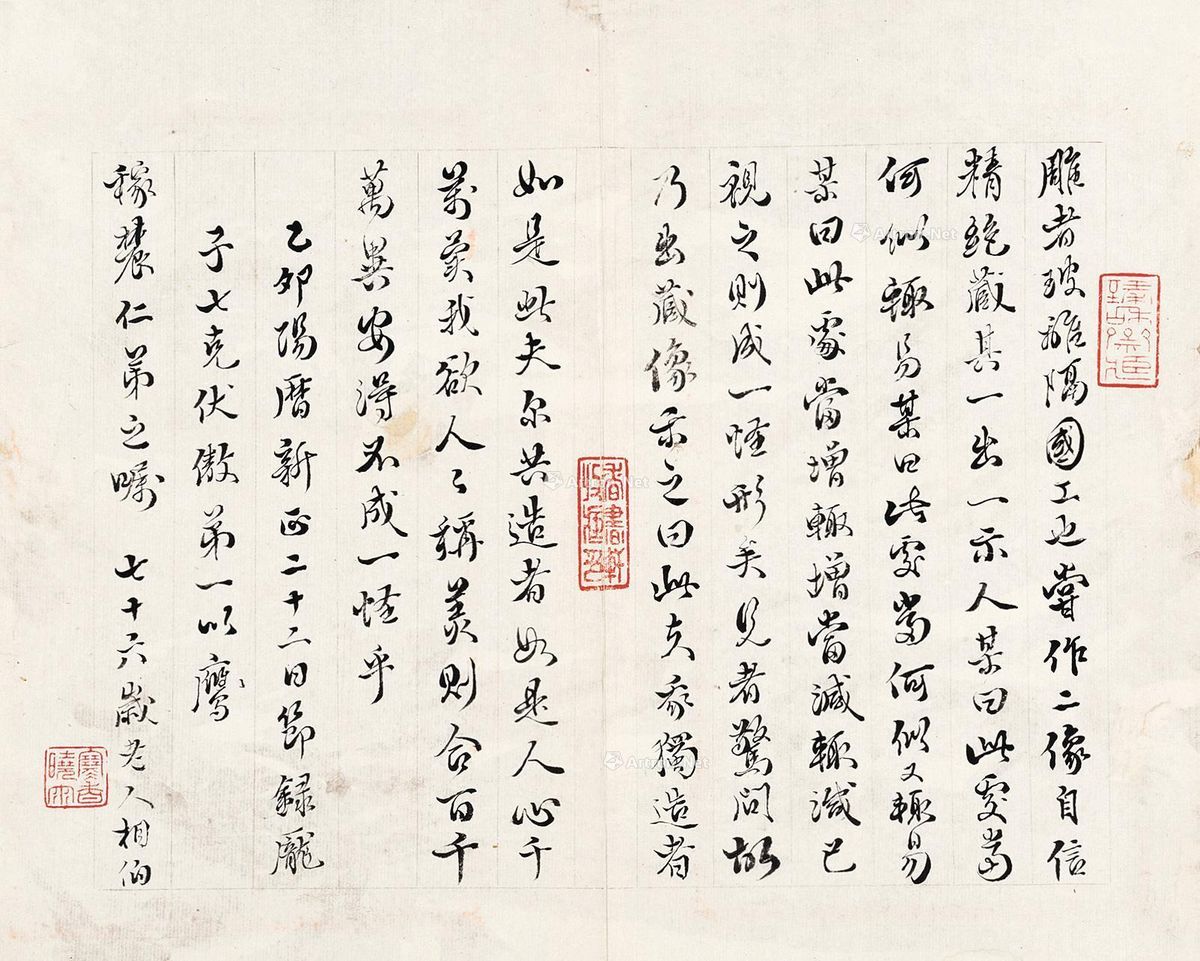 雕者玻雒隔國工也嘗作二像自信
精絕藏其一出一示人某曰此處當
何似輒易某曰此處當何似又輒易
某曰此處當增輒增當減輒減已
視之則成一怪形矣見者驚問故
乃出藏像示之曰此夫我獨造者
如是此夫尔共造者如是人心千
萬美我欲人々稱羨則合百千
萬異安得不成一怪乎
乙卯陽曆新正二十二日節錄龐
子七克伏傲第一以應
稼農仁弟之囑 七十六歲老人相伯